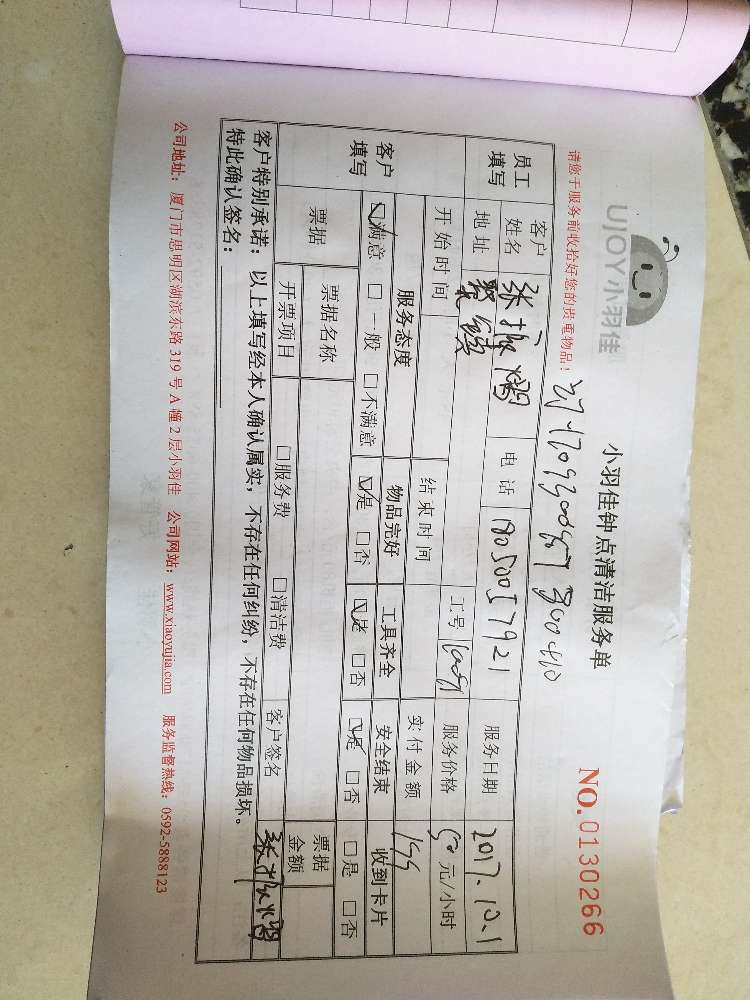 UJOY小羽佳
小羽佳钟点清洁服务单
NO.0130266
请您于服务前收拾好您的贵重物品!
员工填写 客户姓名 电话 服务日期 2017.10.1
地址 工号 服务价格 50元/小时
开始时间 结束时间 实付金额
客户填写 服务态度 物品完好 工具齐全 安全结束 收到卡片
☑满意 □一般 □不满意 ☑是 □否 ☑是 □否 ☑是 □否 □是 □否
票据 票据名称 票据金额
开票项目 □服务费 □清洁费 客户签名
客户特别承诺:以上填写经本人确认属实,不存在任何纠纷,不存在任何物品损坏。
特此确认签名:
公司地址:厦门市思明区湖滨东路319号A幢2层小羽佳 公司网站:www.xiaoyujia.com 服务监督热线:0592-5888123